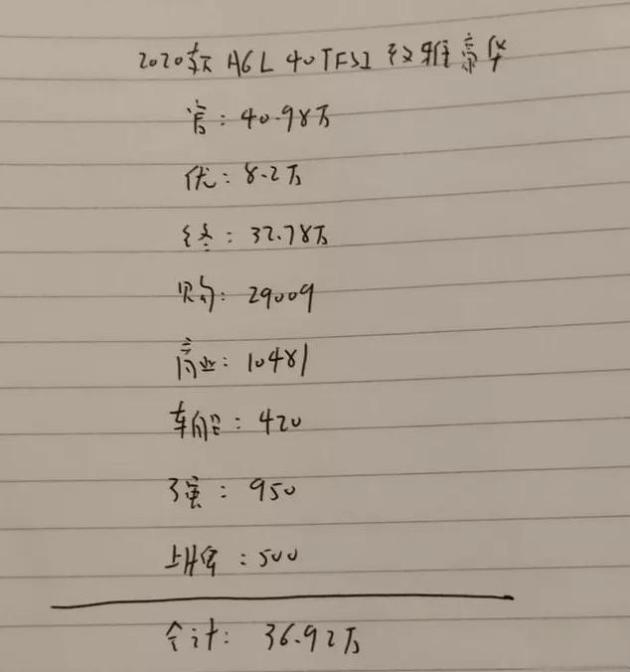 2020款 A6L 40TFSI 致雅豪华
官: 40.98万
优: 8.2万
终: 32.78万
购: 29009
商业: 10481
车船: 420
强: 950
上牌: 500
合计: 36.92万